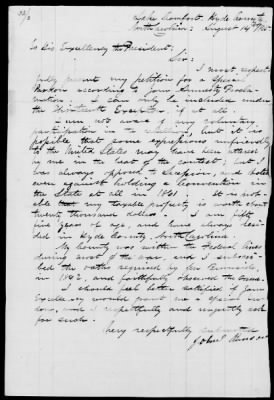 Lake Comfort, Hyde County
North Carolina: August 14th /65.
To His Excellency the President.
Sir:
I most respect-
fully present my petition for a Special
Pardon according to your Amnesty Procla-
mation. I can only be included under
the Thirteenth Exception, if at all.
I am not aware of any voluntary
participation in the rebellion, but it is
possible that some expressions unfriendly
to the United States may have been uttered
by me in the heat of the contest; but I
was always opposed to Secession, and voted
even against holding a Convention in
the State at all in 1861. It is prob-
able that my taxable property is worth about
twenty thousand dollars. I am fifty
five years of age, and have always resi-
ded in Hyde County, North Carolina.
My County was within the Federal lines
during most of the war, and I subscri-
bed the oaths required by Gen Burnside,
in 1862, and faithfully observed the same.
I should feel better satisfied if Your
Excellency would grant me a special par-
don, and I respectfully and urgently ask
for such.
Very respectfully submitted